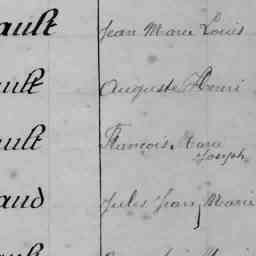 ault Jean Marie Louis
ault Auguste Henri
ault François Marie
Joseph
aud Jules Jean Marie